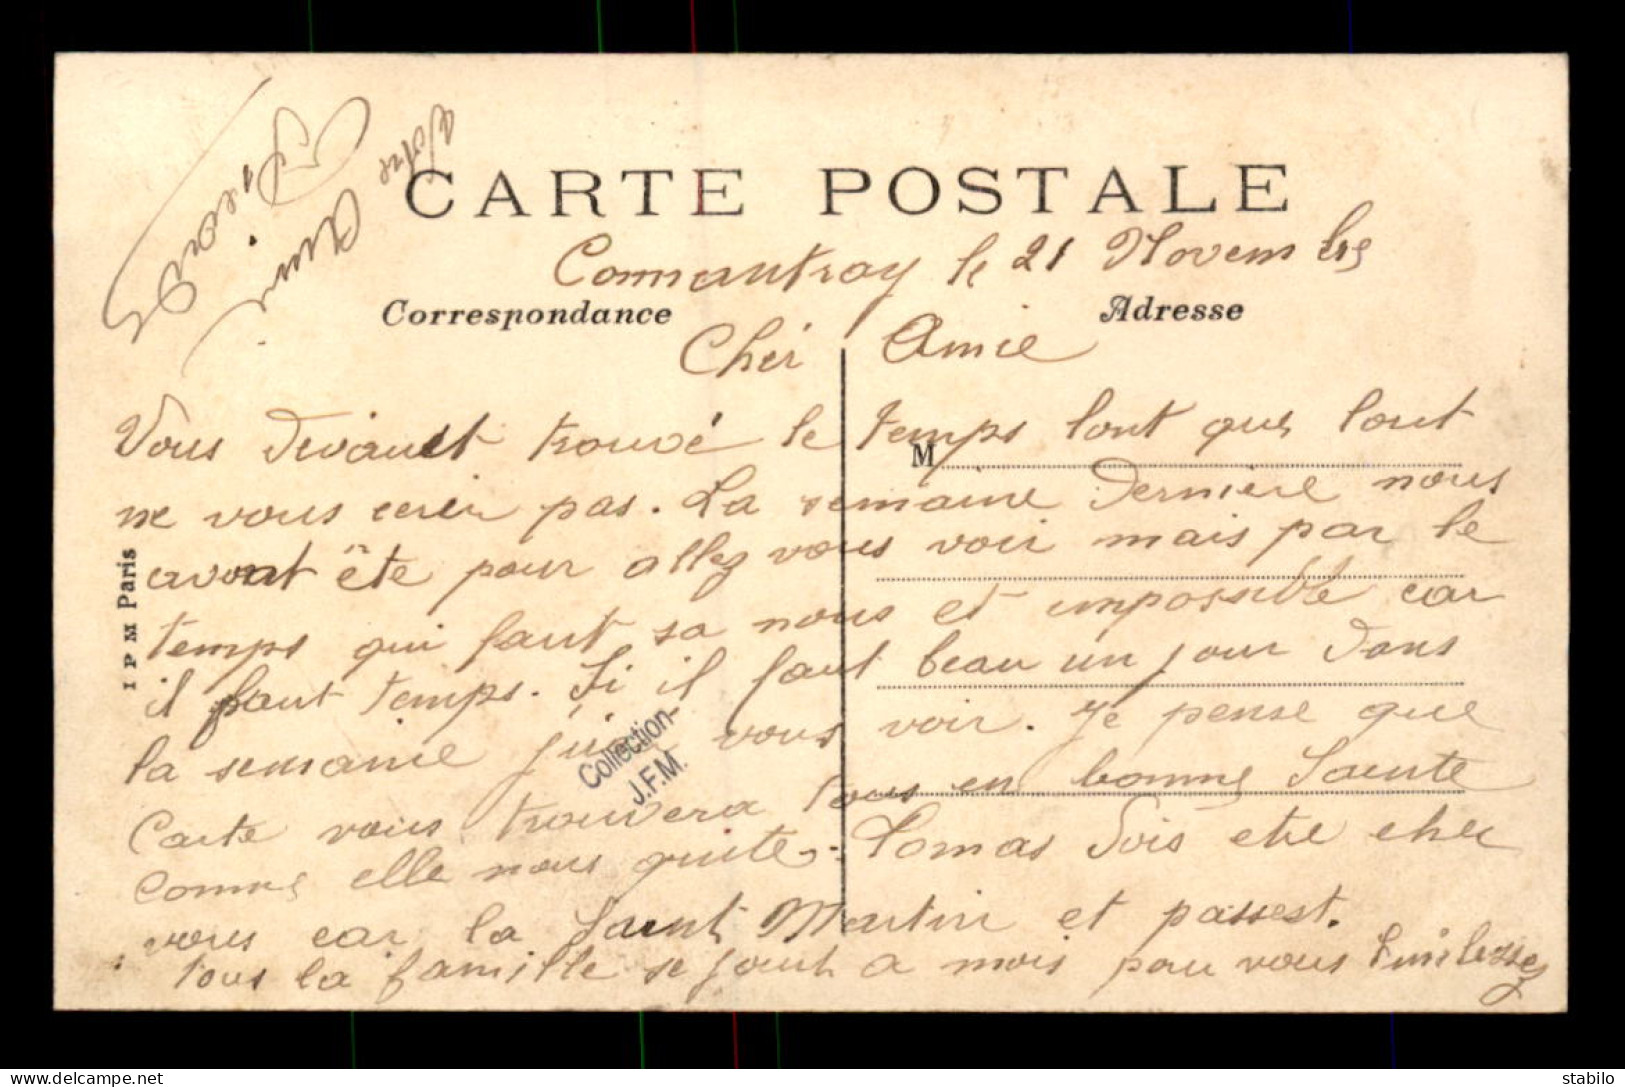 CARTE POSTALE
Connantray le 21 Novembre
Correspondance
Adresse
Chér Amie
Vous devauet trouvé le temps lont que lont
M
ne vous ecrir pas. La semaine derniere nous
avont été pour allez vous voir mais par le
temps qui faut sa nous et impossible car
il faut temps. Si il faut beau un jour dans
la semaine j'irai vous voir. Je pense que
Carte vous trouvera tous en bonne Sante
Comme elle nous quite. Tomas dois etre chez
vous car la Saint Martin et passest.
tous la famille se joint a mois pour vous
Votre Ami
1 P M Paris
Collection
J.F.M.
stabilo